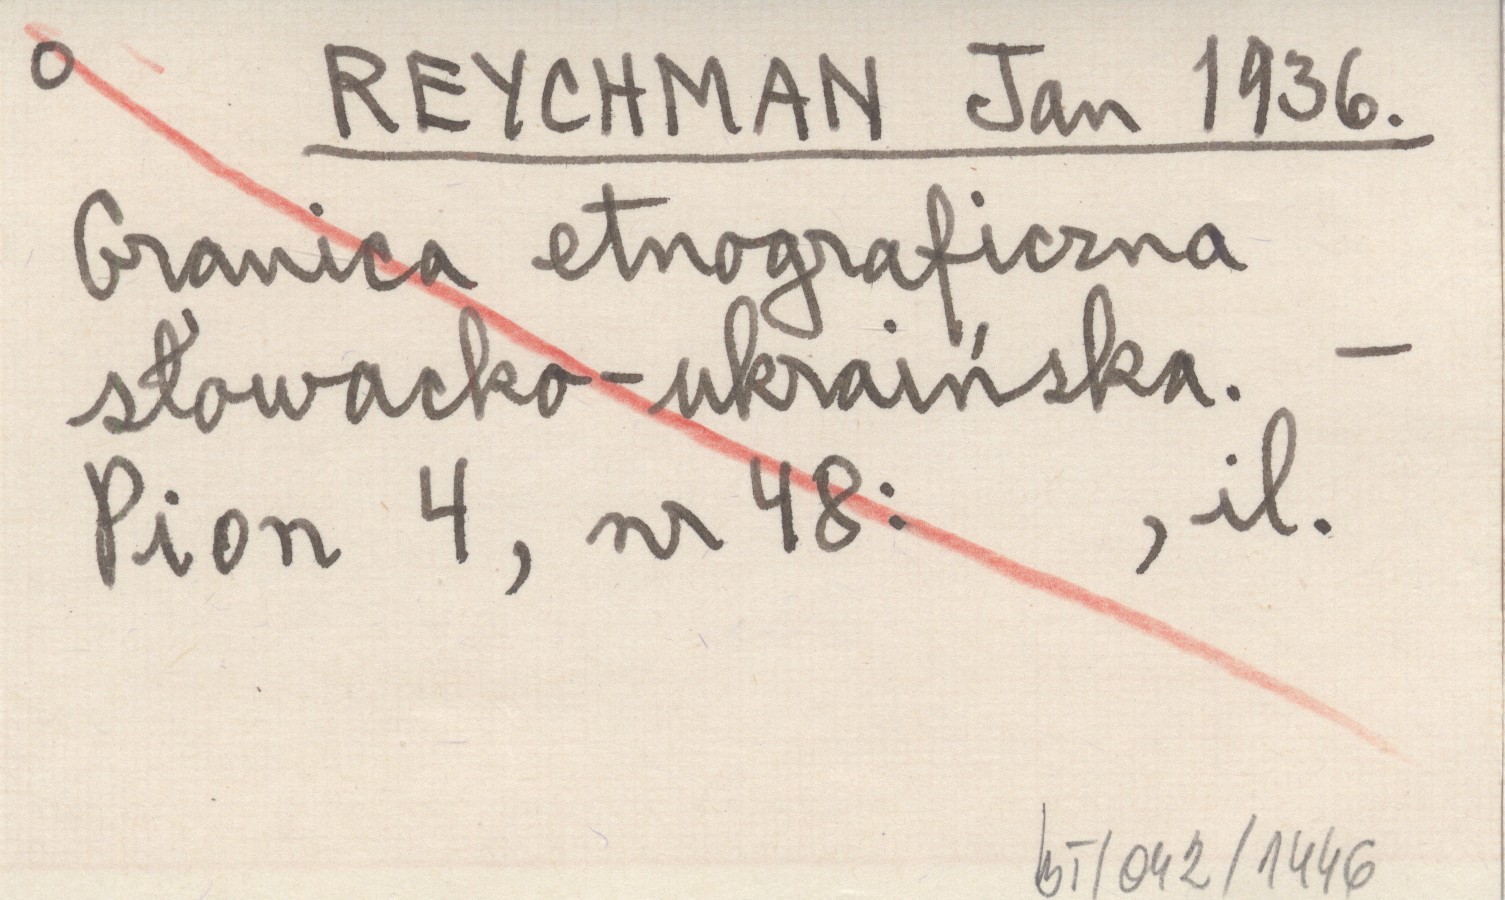 o REYCHMAN Jan 1936.
Granica etnograficzna
słowacko-ukraińska. -
Pion 4, nr 48: , il.
BT/042/1446